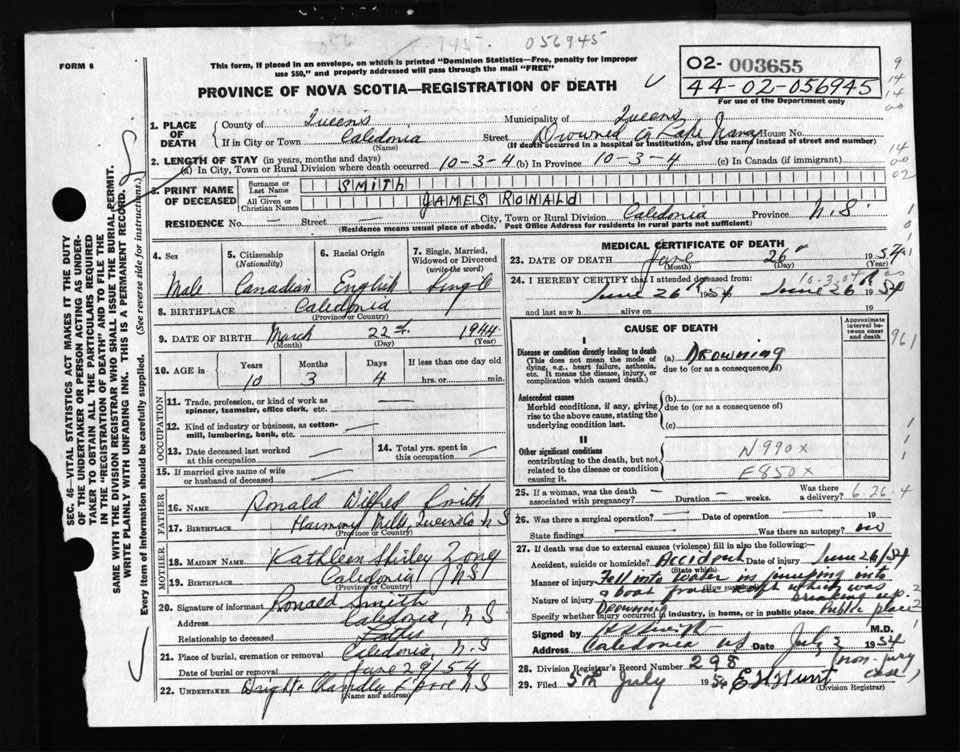 056 745. 056945
FORM 6
This form, if placed in an envelope, on which is printed "Dominion Statistics—Free, penalty for improper
use $50," and properly addressed will pass through the mail "FREE"
PROVINCE OF NOVA SCOTIA—REGISTRATION OF DEATH
02- 003655
44-02-056945
For use of the Department only
1. PLACE OF DEATH
County of Queens Municipality of Queens
If in City or Town Caledonia (Name) Street Drowned in Lake House No.
(If death occurred in a hospital or institution, give the name instead of street and number)
2. LENGTH OF STAY (in years, months and days)
(a) In City, Town or Rural Division where death occurred 10-3-4 (b) In Province 10-3-4 (c) In Canada (if immigrant)
3. PRINT NAME OF DECEASED
Surname or Last Name SMITH
All Given or Christian Names JAMES RONALD
RESIDENCE No. — Street — City, Town or Rural Division Caledonia Province N.S.
(Residence means usual place of abode. Post Office Address for residents in rural parts not sufficient)
4. Sex Male
5. Citizenship (Nationality) Canadian
6. Racial Origin English
7. Single, Married, Widowed or Divorced (write the word) Single
8. BIRTHPLACE Caledonia (Province or Country)
9. DATE OF BIRTH March (Month) 22 (Day) 1944 (Year)
10. AGE in Years 10 Months 3 Days 4 If less than one day old hrs. or min.
OCCUPATION
11. Trade, profession, or kind of work as spinner, teamster, office clerk, etc. —
12. Kind of industry or business, as cotton-mill, lumbering, bank, etc. —
13. Date deceased last worked at this occupation —
14. Total yrs. spent in this occupation —
15. If married give name of wife or husband of deceased —
FATHER
16. NAME Ronald Wilfred Smith
17. BIRTHPLACE Harmony Mills, Queens Co N S (Province or Country)
MOTHER
18. MAIDEN NAME Kathleen Shirley
19. BIRTHPLACE Caledonia N S (Province or Country)
20. Signature of informant Ronald Smith
Address Caledonia, N S
Relationship to deceased Father
21. Place of burial, cremation or removal Caledonia N.S
Date of burial or removal June 29/54
22. UNDERTAKER (Name and address)
MEDICAL CERTIFICATE OF DEATH
23. DATE OF DEATH June (Month) 26 (Day) 1954 (Year)
24. I HEREBY CERTIFY that I attended deceased from:
June 26 1954 June 26 1954
and last saw h alive on 19
CAUSE OF DEATH
Approximate interval between onset and death
I
Disease or condition directly leading to death
(This does not mean the mode of dying, e.g., heart failure, asthenia, etc. It means the disease, injury, or complication which caused death.)
(a) Drowning
due to (or as a consequence of)
Antecedent causes
Morbid conditions, if any, giving rise to the above cause, stating the underlying condition last.
(b)
due to (or as a consequence of)
(c)
II
Other significant conditions
contributing to the death, but not related to the disease or condition causing it.
N990x
E850x
25. If a woman, was the death associated with pregnancy? — Duration — weeks. Was there a delivery?
26. Was there a surgical operation? — Date of operation — 19
State findings Was there an autopsy? no
27. If death was due to external causes (violence) fill in also the following:—
Accident, suicide or homicide? Accident (State which) Date of injury June 26/54
Manner of injury Fell into water in jumping into
a boat from raft which was
Nature of injury Drowning breaking up.
Specify whether injury occurred in industry, in home, or in public place Public place
Signed by M.D.
Address Caledonia Date July 1954
28. Division Registrar's Record Number 298
(non-jury case)
29. Filed 5th July 1954 E H Hunt (Division Registrar)
SEC. 46—VITAL STATISTICS ACT MAKES IT THE DUTY
OF THE UNDERTAKER OR PERSON ACTING AS UNDER-
TAKER TO OBTAIN ALL THE PARTICULARS REQUIRED
IN THE "REGISTRATION OF DEATH" AND TO FILE THE
SAME WITH THE DIVISION REGISTRAR WHO SHALL ISSUE THE BURIAL PERMIT.
WRITE PLAINLY WITH UNFADING INK. THIS IS A PERMANENT RECORD.
Every item of information should be carefully supplied. (See reverse side for instructions.)